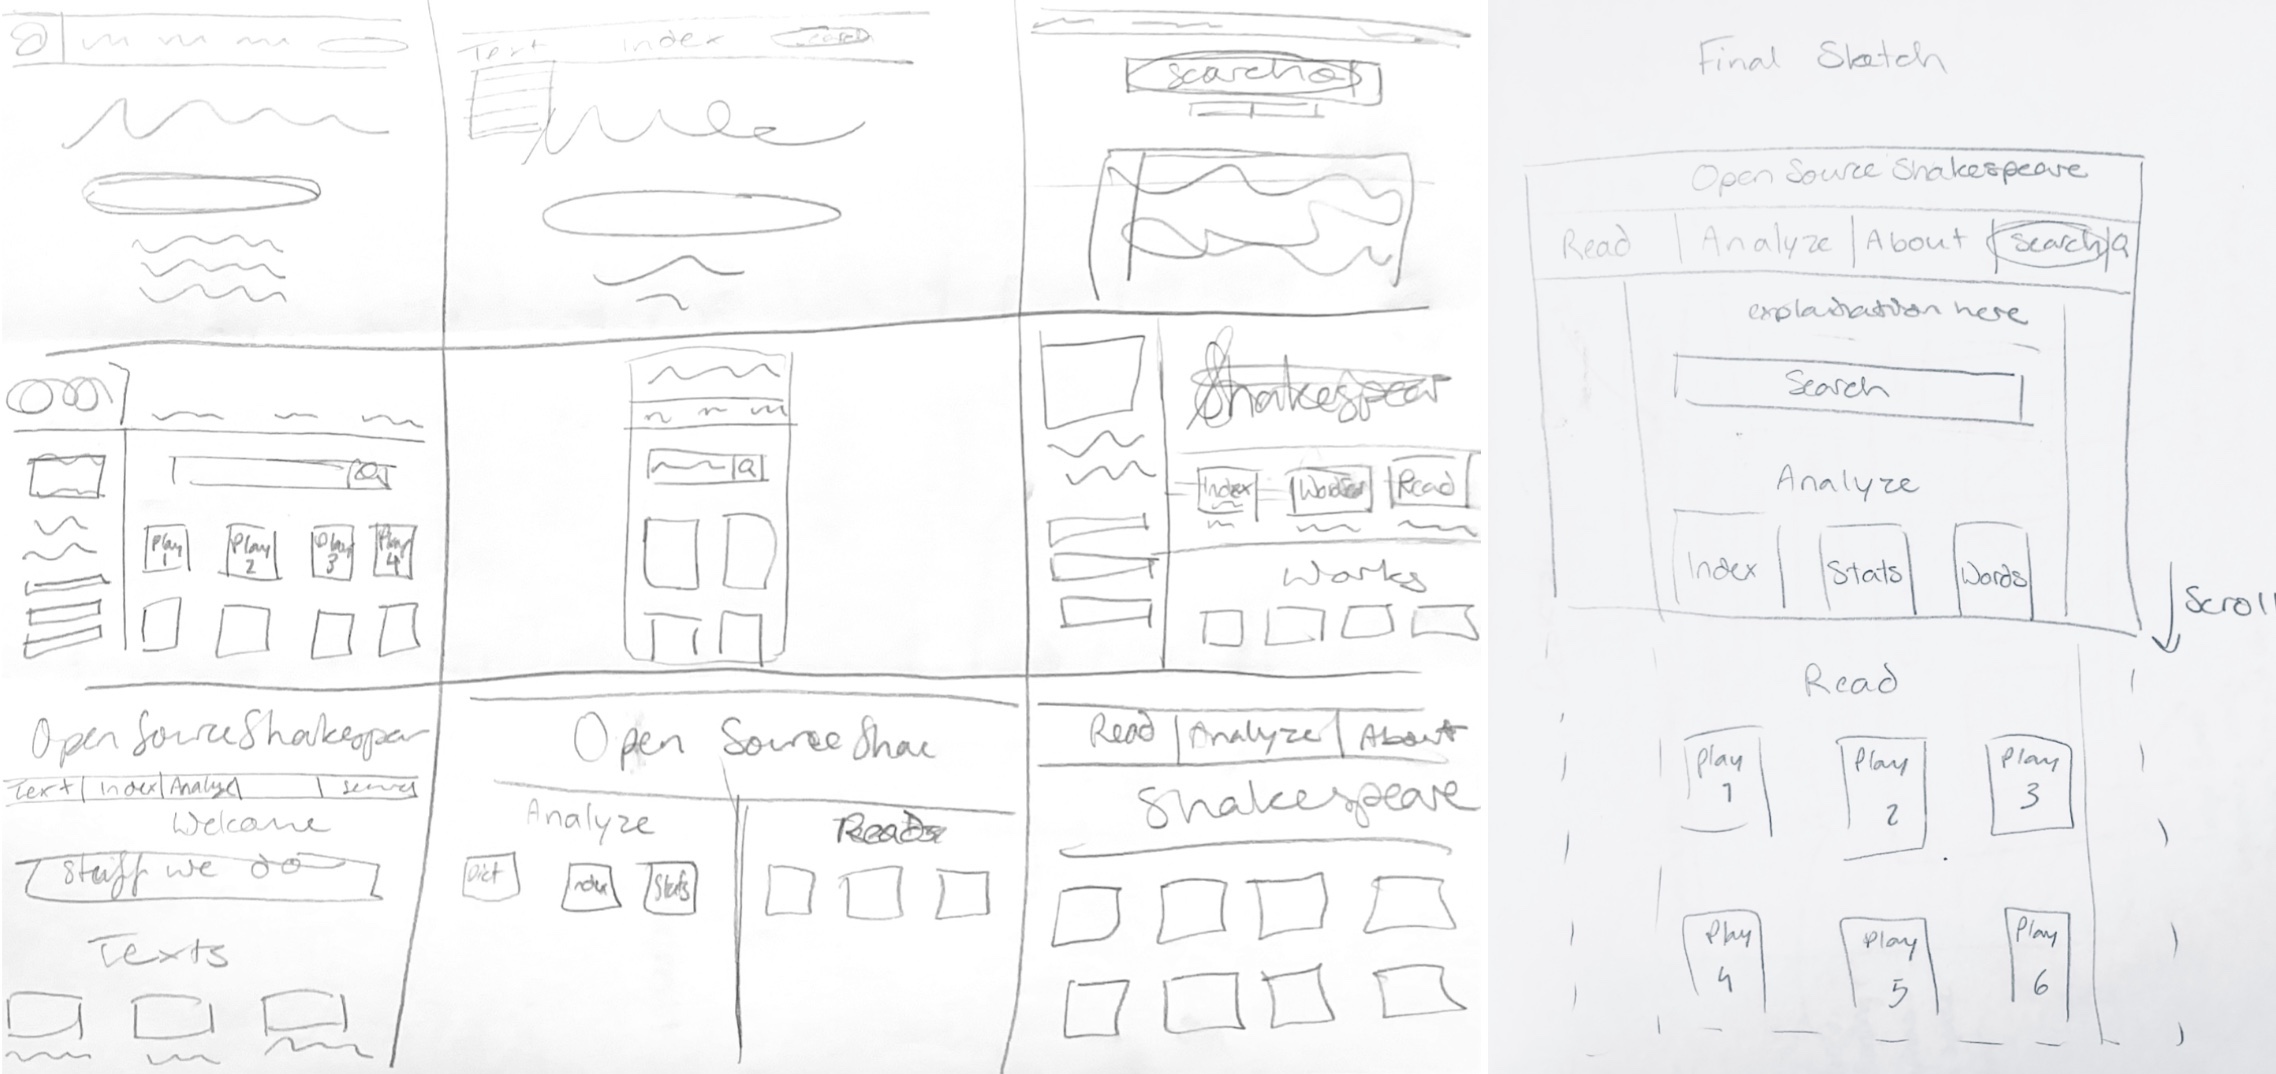 Text Index search
search
Play 1 Play 2 Play 3 Play 4
Shakespear
Index Words Read
Works
Open Source Shakespear
Text Index Analyze search
Welcome
Stuff we do
Texts
Open Source Shac
Analyze Reads
Dict Index Stats
Read Analyze About
Shakespeare
Final Sketch
Open Source Shakespeare
Read Analyze About search
explanation here
Search
Analyze
Index Stats Words
Scroll
Read
Play 1 Play 2 Play 3
Play 4 Play 5 Play 6